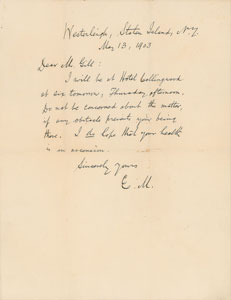 Westerleigh, Staten Island, N.Y.
May 13, 1903
Dear Mr Gill:
I will be at Hotel Collingwood
at six tomorrow, Thursday, afternoon.
Do not be concerned about the matter,
if any obstacle prevents your being
there. I do hope that your health
is in ascension.
Sincerely yours
E. M.